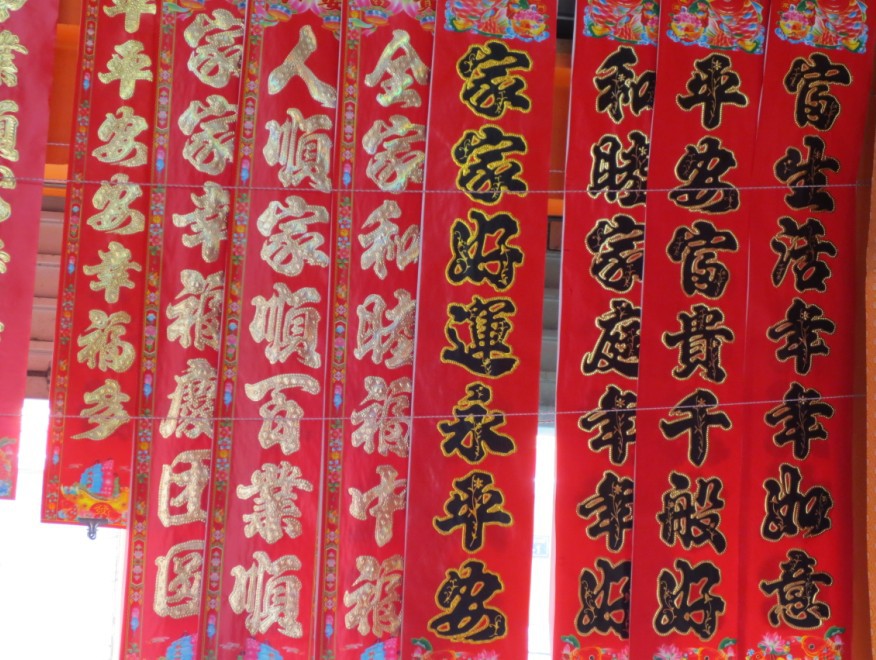 富生活年年如意
平安富貴千般好
和睦家庭年年好
家家好運永平安
全家和睦福中福
人順家順百業順
家家幸福慶团圆
平平安安幸福多